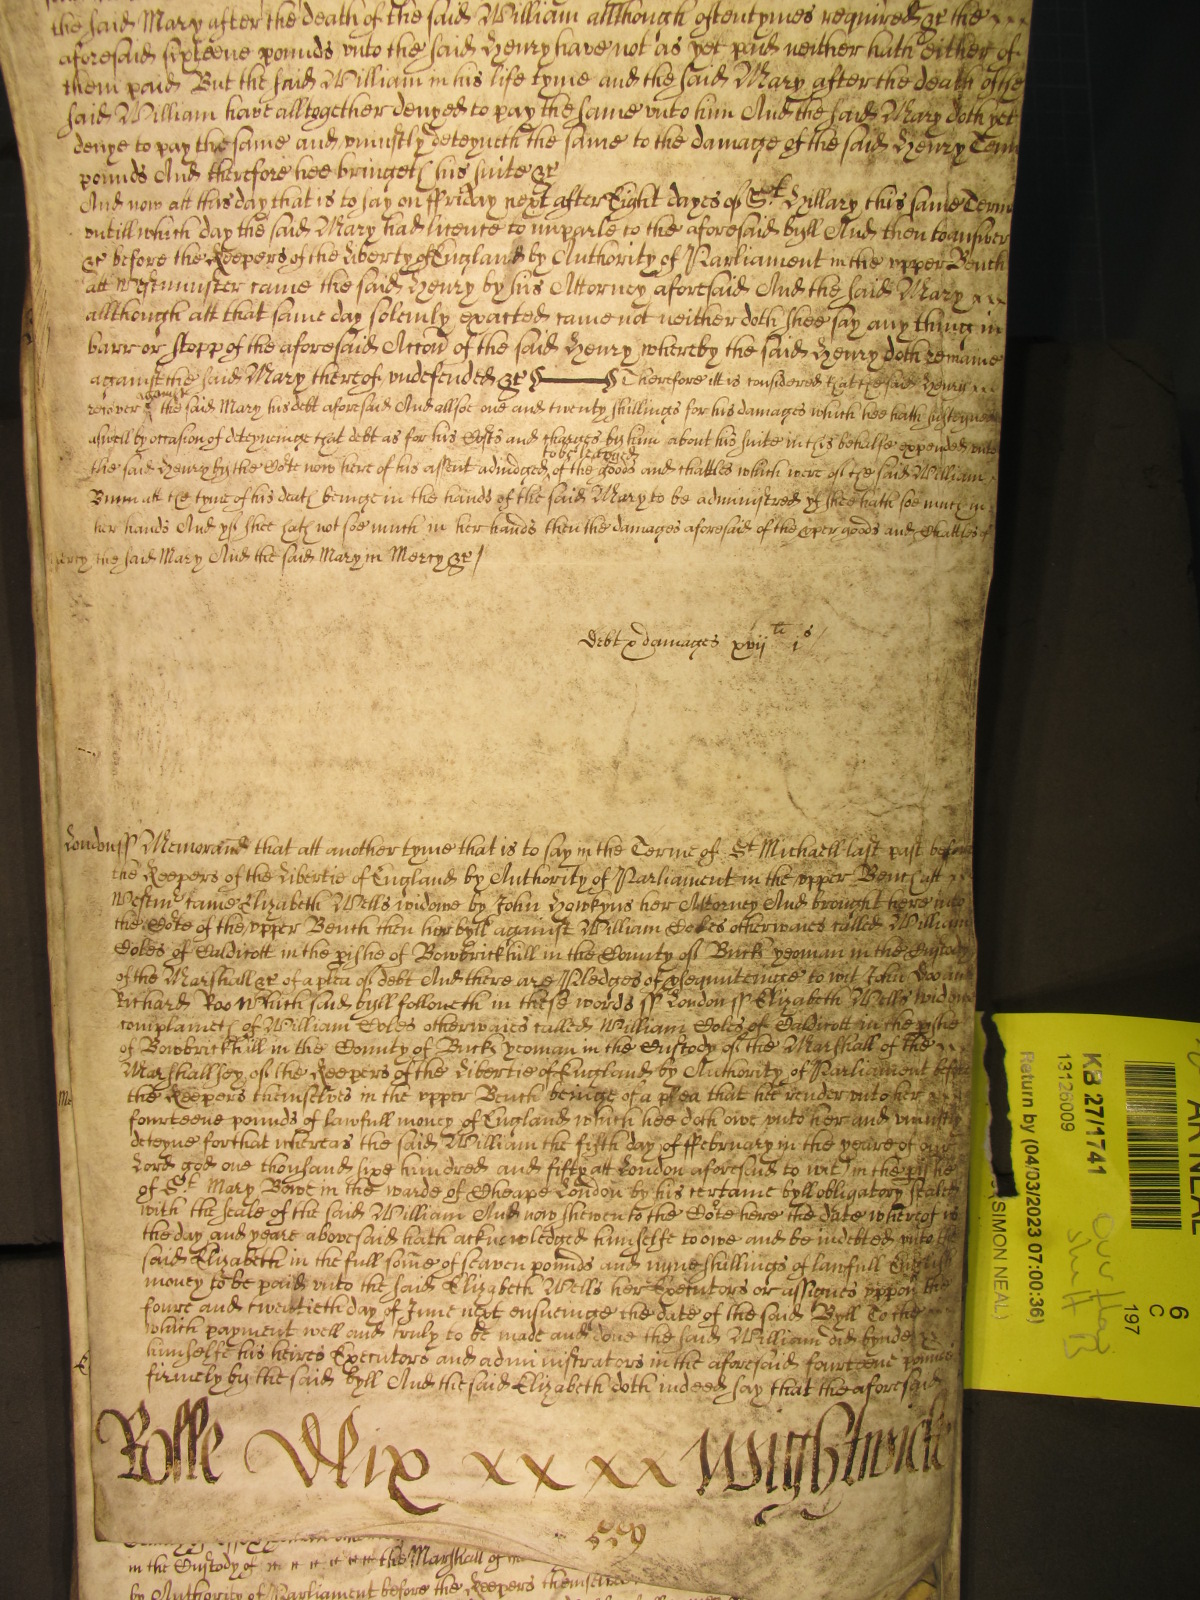 the said Mary after the death of the said William allthough oftentymes required &c the
aforesaid sixteene pounds vnto the said Henry have not as yet paid neither hath either of
them paid But the said William in his life tyme and the said Mary after the death of the
said William have alltogether denyed to pay the same vnto him And the said Mary doth yet
denye to pay the same and vniustly deteyneth the same to the damage of the said Henry Tenn
pounds And therefore hee bringeth his suite &c
And now att this day that is to say on ffriday next after Eight dayes of St Hillary this same Terme
vntill which day the said Mary had licence to imparle to the aforesaid byll And then to answer
&c before the Keepers of the liberty of England by Authority of Parliament in the vpper Bench
att Westminster came the said Henry by his Attorney aforesaid And the said Mary
allthough att that same day solemly exacted came not neither doth shee say any thing in
barr or stopp of the aforesaid Accon of the said Henry whereby the said Henry doth remaine
against the said Mary thereof vndefended &c Therefore itt is considered that the said Henry
recover against the said Mary his debt aforesaid And allsoe one and twenty shillings for his damages which hee hath susteyned
aswell by occasion of deteyneinge that debt as for his Costs and charges by him about his suite in this behalfe expended vnto
the said Henry by the Cote now here of his assent adiudged to be levyed of the goods and chattles which were of the said William
Bunn att the tyme of his death beinge in the hands of the said Mary to be administred yf shee hath soe much in
her hands And yf shee hath not soe much in her hands then the damages aforesaid of the proper goods and Chattles of
mercy the said Mary And the said Mary in Mercy &c
Debt & damages xvij li js
London ss Memorand that att another tyme that is to say in the Terme of St Michaell last past before
the Keepers of the Libertie of England by Authority of Parliament in the vpper Bench att
Westm came Elizabeth Wells widowe by John Howkyns her Attorney And brought here into
the Cote of the vpper Bench then her byll against William Coles otherwaies called William
Coles of Caldicott in the pishe of Bowbrickhill in the County of Bucks yeoman in the Custody
of the Marshall &c of a plea of debt And there are Pledges of psequuteinge to wit John Doo and
Richard Roo Which said byll followeth in these words ss London ss Elizabeth Wells widowe
complaineth of William Coles otherwaies called William Coles of Caldicott in the pishe
of Bowbrickhill in the County of Bucks yeoman in the Custody of the Marshall of the
Marshallsey of the Keepers of the Libertie of England by Authority of Parliament before
the Keepers themselves in the vpper Bench beinge of a plea that hee render vnto her
fourteene pounds of lawfull money of England which hee doth owe vnto her and vniustly
deteyne for that whereas the said William the fifth day of ffebruary in the yeare of our
Lord god one thousand sixe hundred and fifty att London aforesaid to wit in the pishe
of St Mary Bowe in the warde of Cheape London by his certaine byll obligatory sealed
with the seale of the said William And now shewen to the Cote here the date whereof is
the day and yeare abovesaid hath acknowledged himselfe to owe and be indebted vnto the
said Elizabeth in the full some of seaven pounds and nyne shillings of lawfull English
money to be paid vnto the said Elizabeth Wells her Executors or assignes vppon the
foure and twentieth day of June next ensueinge the date of the said Byll To the
which payment well and truly to be made and done the said William did bynde
himselfe his heires Executors and administrators in the aforesaid fourteene pounds
firmely by the said byll And the said Elizabeth doth indeed say that the aforesaid
Rolle Mix xxxx Wightwick
in the Custody of the Marshall of
by Authority of Parliament before the Keepers themselves
KB 27/1741
13126009
Return by (04/03/2023 07:00:36)
SIMON NEAL)
197
6
C